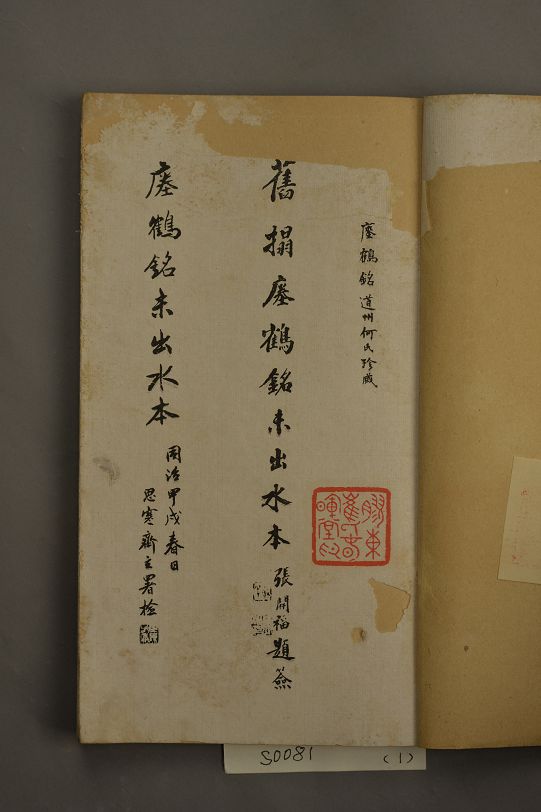 瘞鶴銘道州何氏珍藏
舊搨瘞鶴銘未出水本
張開福題簽
瘞鶴銘未出水本
同治甲戌春日
思寒齋主署檢
膠東
堂印
S0081 (1)